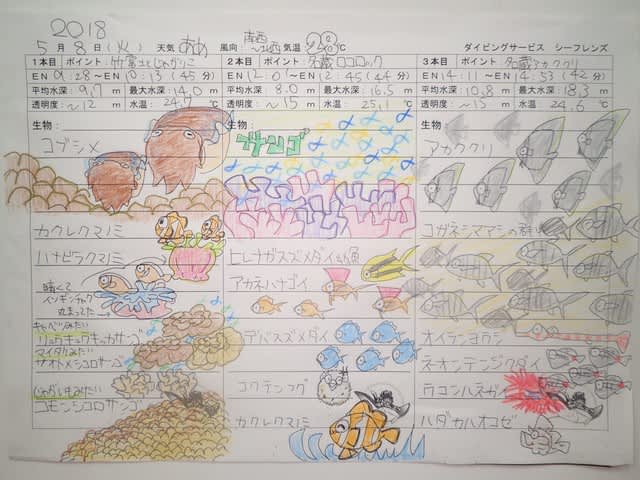 2018
5月8日(火) 天気 あめ 風向: 南西〜西 気温 28℃ ダイビングサービス シーフレンズ
1本目 ポイント: 竹富エビじゃがりこ
EN 9:28〜EN 10:13 (45分)
平均水深: 9.7m 最大水深: 14.0m
透明度: 〜12m 水温: 24.7℃
生物:
コブシメ
カクレクマノミ
ハナビラクマノミ
暗くて
イソギンチャク
丸まってた
キャベツみたい
リュウキュウキッカサンゴ
マイタケみたい
サオトメシコロサンゴ
じゃがいもみたい
コモンシコロサンゴ
2本目 ポイント: 名蔵ロロロック
EN 12:01〜EN 12:45 (44分)
平均水深: 8.0m 最大水深: 16.5m
透明度: 〜15m 水温: 25.1℃
生物:
サンゴ
ヒレナガスズメダイ幼魚
アカネハナゴイ
デバスズメダイ
コクテンフグ
カクレクマノミ
3本目 ポイント: 名蔵アカククリ
EN 14:11〜EN 14:53 (42分)
平均水深: 10.8m 最大水深: 18.3m
透明度: 〜15m 水温: 24.6℃
生物:
アカククリ
コガネシマアジの群れ
オイランヨウジ
ネオンテンジクダイ
ウコンハネガイ
ハダカハオコゼ